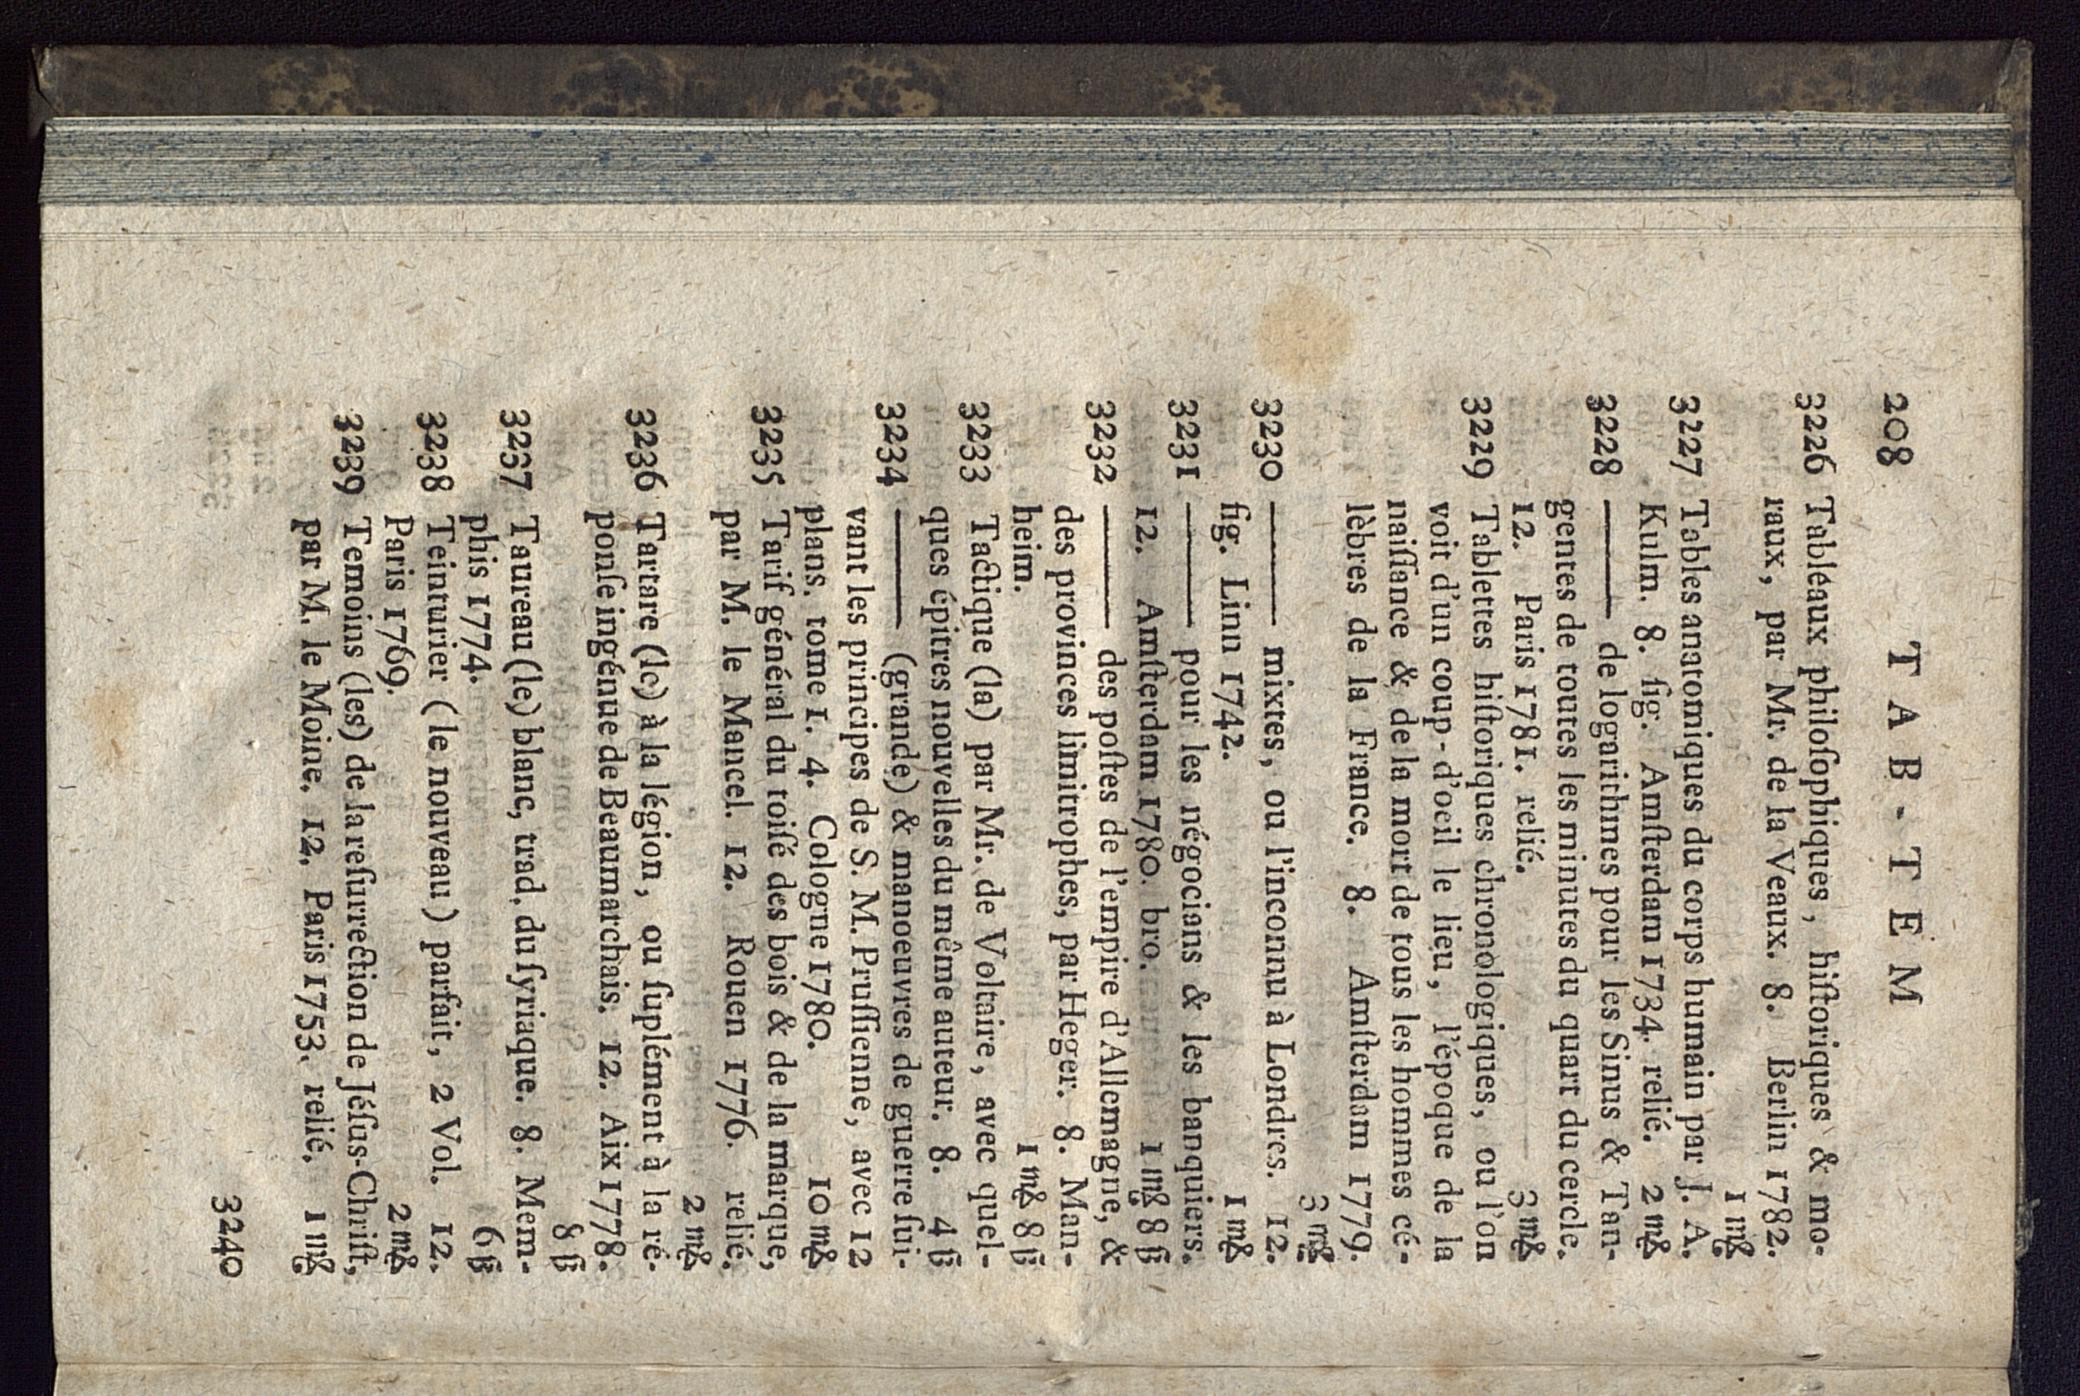 208 TAB-TEM
3226 Tabléaux philoſophiques, hiſtoriques & mo-
raux, par Mr. de la Veaux. 8. Berlin 1782.
1 m&
3227 Tables anatomiques du corps humain par J. A.
Kulm. 8. fig. Amſterdam 1734. relié. 2 m&
3228 ——— de logarithmes pour les Sinus & Tan-
gentes de toutes les minutes du quart du cercle.
12. Paris 1781. relié. 3 m&
3229 Tablettes hiſtoriques chronologiques, ou l'on
voit d'un coup-d'oeil le lieu, l'époque de la
naiſſance & de la mort de tous les hommes cé-
lèbres de la France. 8. Amſterdam 1779.
3 m&
3230 ——— mixtes, ou l'inconnu à Londres. 12.
fig. Linn 1742. 1 m&
3231 ——— pour les négocians & les banquiers.
12. Amſterdam 1780. bro. 1 m& 8 ß
3232 ——— des poſtes de l'empire d'Allemagne, &
des provinces limitrophes, par Heger. 8. Man-
heim. 1 m& 8 ß
3233 Tactique (la) par Mr. de Voltaire, avec quel-
ques épitres nouvelles du même auteur. 8. 4 ß
3234 ——— (grande) & manoeuvres de guerre ſui-
vant les principes de S. M. Pruſſienne, avec 12
plans. tome 1. 4. Cologne 1780. 10 m&
3235 Tarif général du toiſé des bois & de la marque,
par M. le Mancel. 12. Rouen 1776. relié.
2 m&
3236 Tartare (le) à la légion, ou ſuplément à la ré-
ponſe ingénue de Beaumarchais. 12. Aix 1778.
8 ß
3237 Taureau (le) blanc, trad. du ſyriaque. 8. Mem-
phis 1774. 6 ß
3238 Teinturier (le nouveau) parfait, 2 Vol. 12.
Paris 1769. 2 m&
3239 Temoins (les) de la reſurrection de Jéſus-Chriſt,
par M. le Moine. 12. Paris 1753. relié. 1 m&
3240